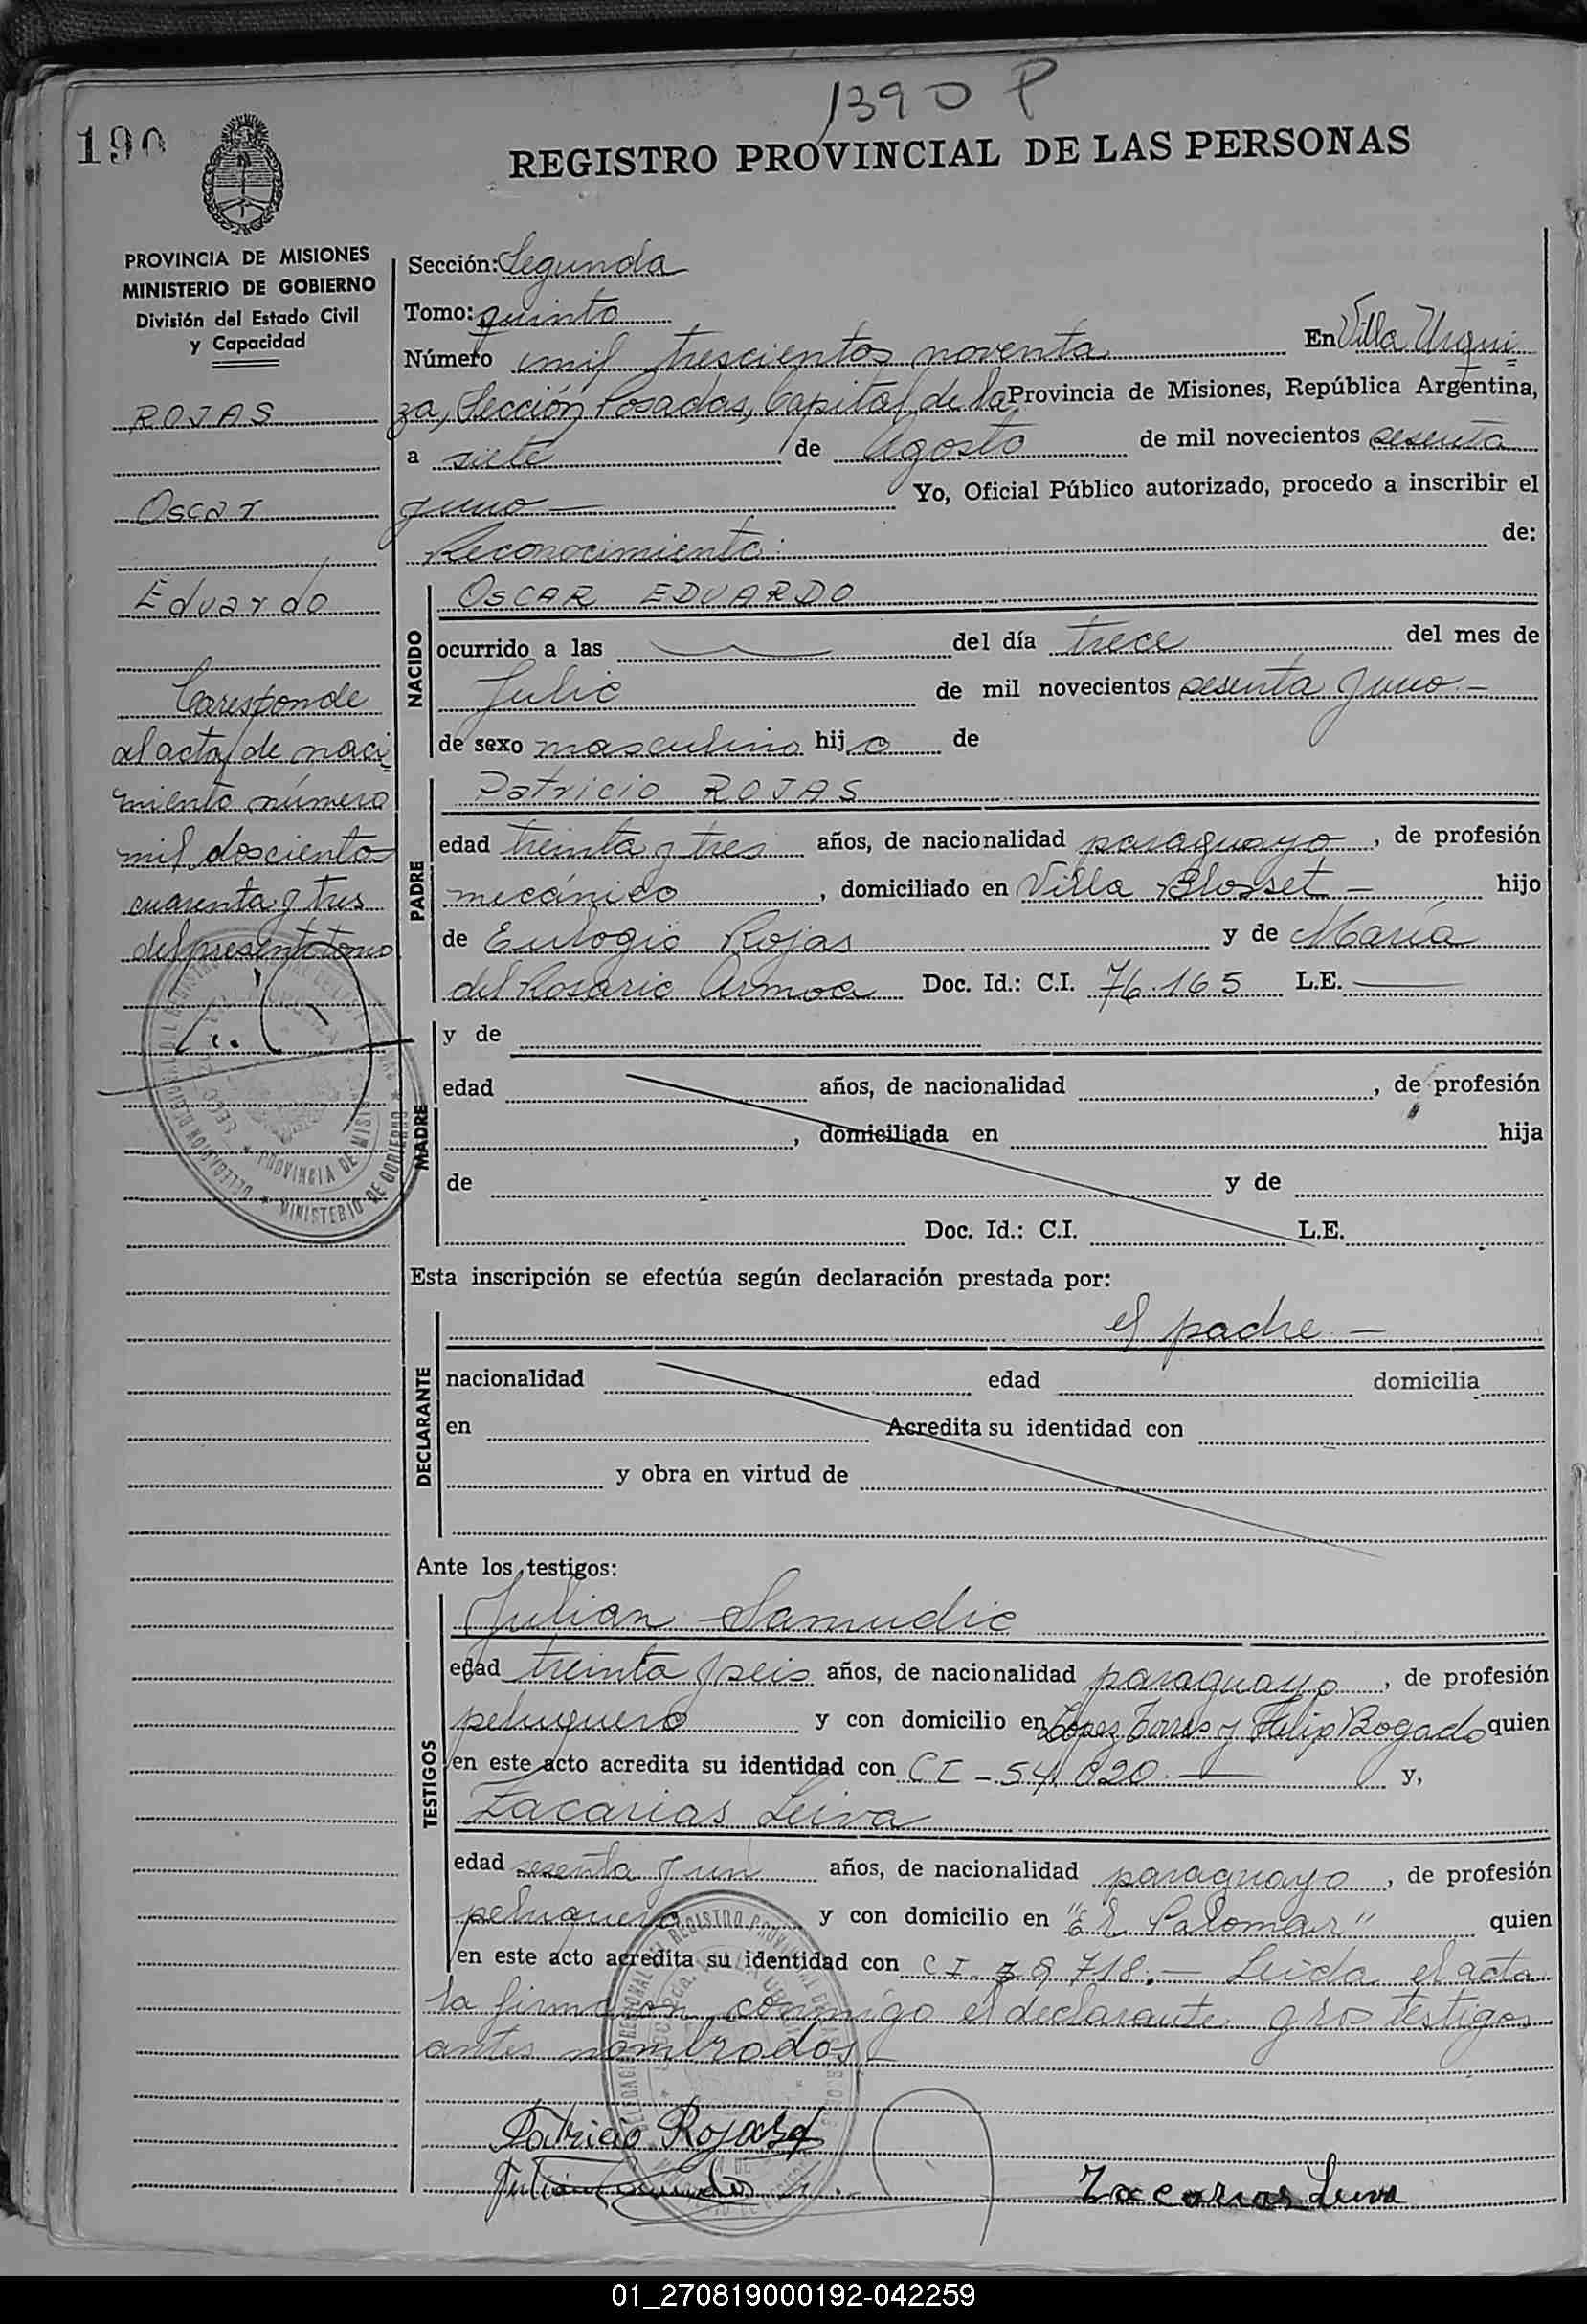 1390 P
190
REGISTRO PROVINCIAL DE LAS PERSONAS
PROVINCIA DE MISIONES
MINISTERIO DE GOBIERNO
División del Estado Civil
y Capacidad
ROJAS
Oscar
Eduardo
Corresponde
al acta de naci
miento número
mil doscientos
cuarenta y tres
del presente tomo
Sección: Segunda
Tomo: quinto
Número mil trescientos noventa En Villa Urqui
za, Sección Posadas, Capital de la Provincia de Misiones, República Argentina,
a siete de Agosto de mil novecientos sesenta
y uno — Yo, Oficial Público autorizado, procedo a inscribir el
Reconocimiento: de:
NACIDO
OSCAR EDUARDO
ocurrido a las — del día trece del mes de
Julio de mil novecientos sesenta y uno.—
de sexo masculino hijo de
PADRE
Patricio ROJAS
edad treinta y tres años, de nacionalidad paraguayo, de profesión
mecánico, domiciliado en Villa Blosset — hijo
de Eulogio Rojas y de María
del Rosario Armoa Doc. Id.: C.I. 76.165 L.E. —
MADRE
y de
edad años, de nacionalidad , de profesión
, domiciliada en hija
de y de
Doc. Id.: C.I. L.E.
Esta inscripción se efectúa según declaración prestada por:
DECLARANTE
el padre —
nacionalidad edad domicilia
en Acredita su identidad con
y obra en virtud de
Ante los testigos:
TESTIGOS
Julian Samudio
edad treinta y seis años, de nacionalidad paraguayo, de profesión
peluquero y con domicilio en Lopez Torres y Felip Bogado quien
en este acto acredita su identidad con CI - 54 020.— y,
Zacarias Leiva
edad sesenta y un años, de nacionalidad paraguayo, de profesión
peluquero y con domicilio en "El Palomar" quien
en este acto acredita su identidad con CI 718.— Leida el acta
la firmaron conmigo el declarante y los testigos
antes nombrados.—
Patricio Rojas
Julian Samudio
Zacarias Leiva
01_270819000192-042259